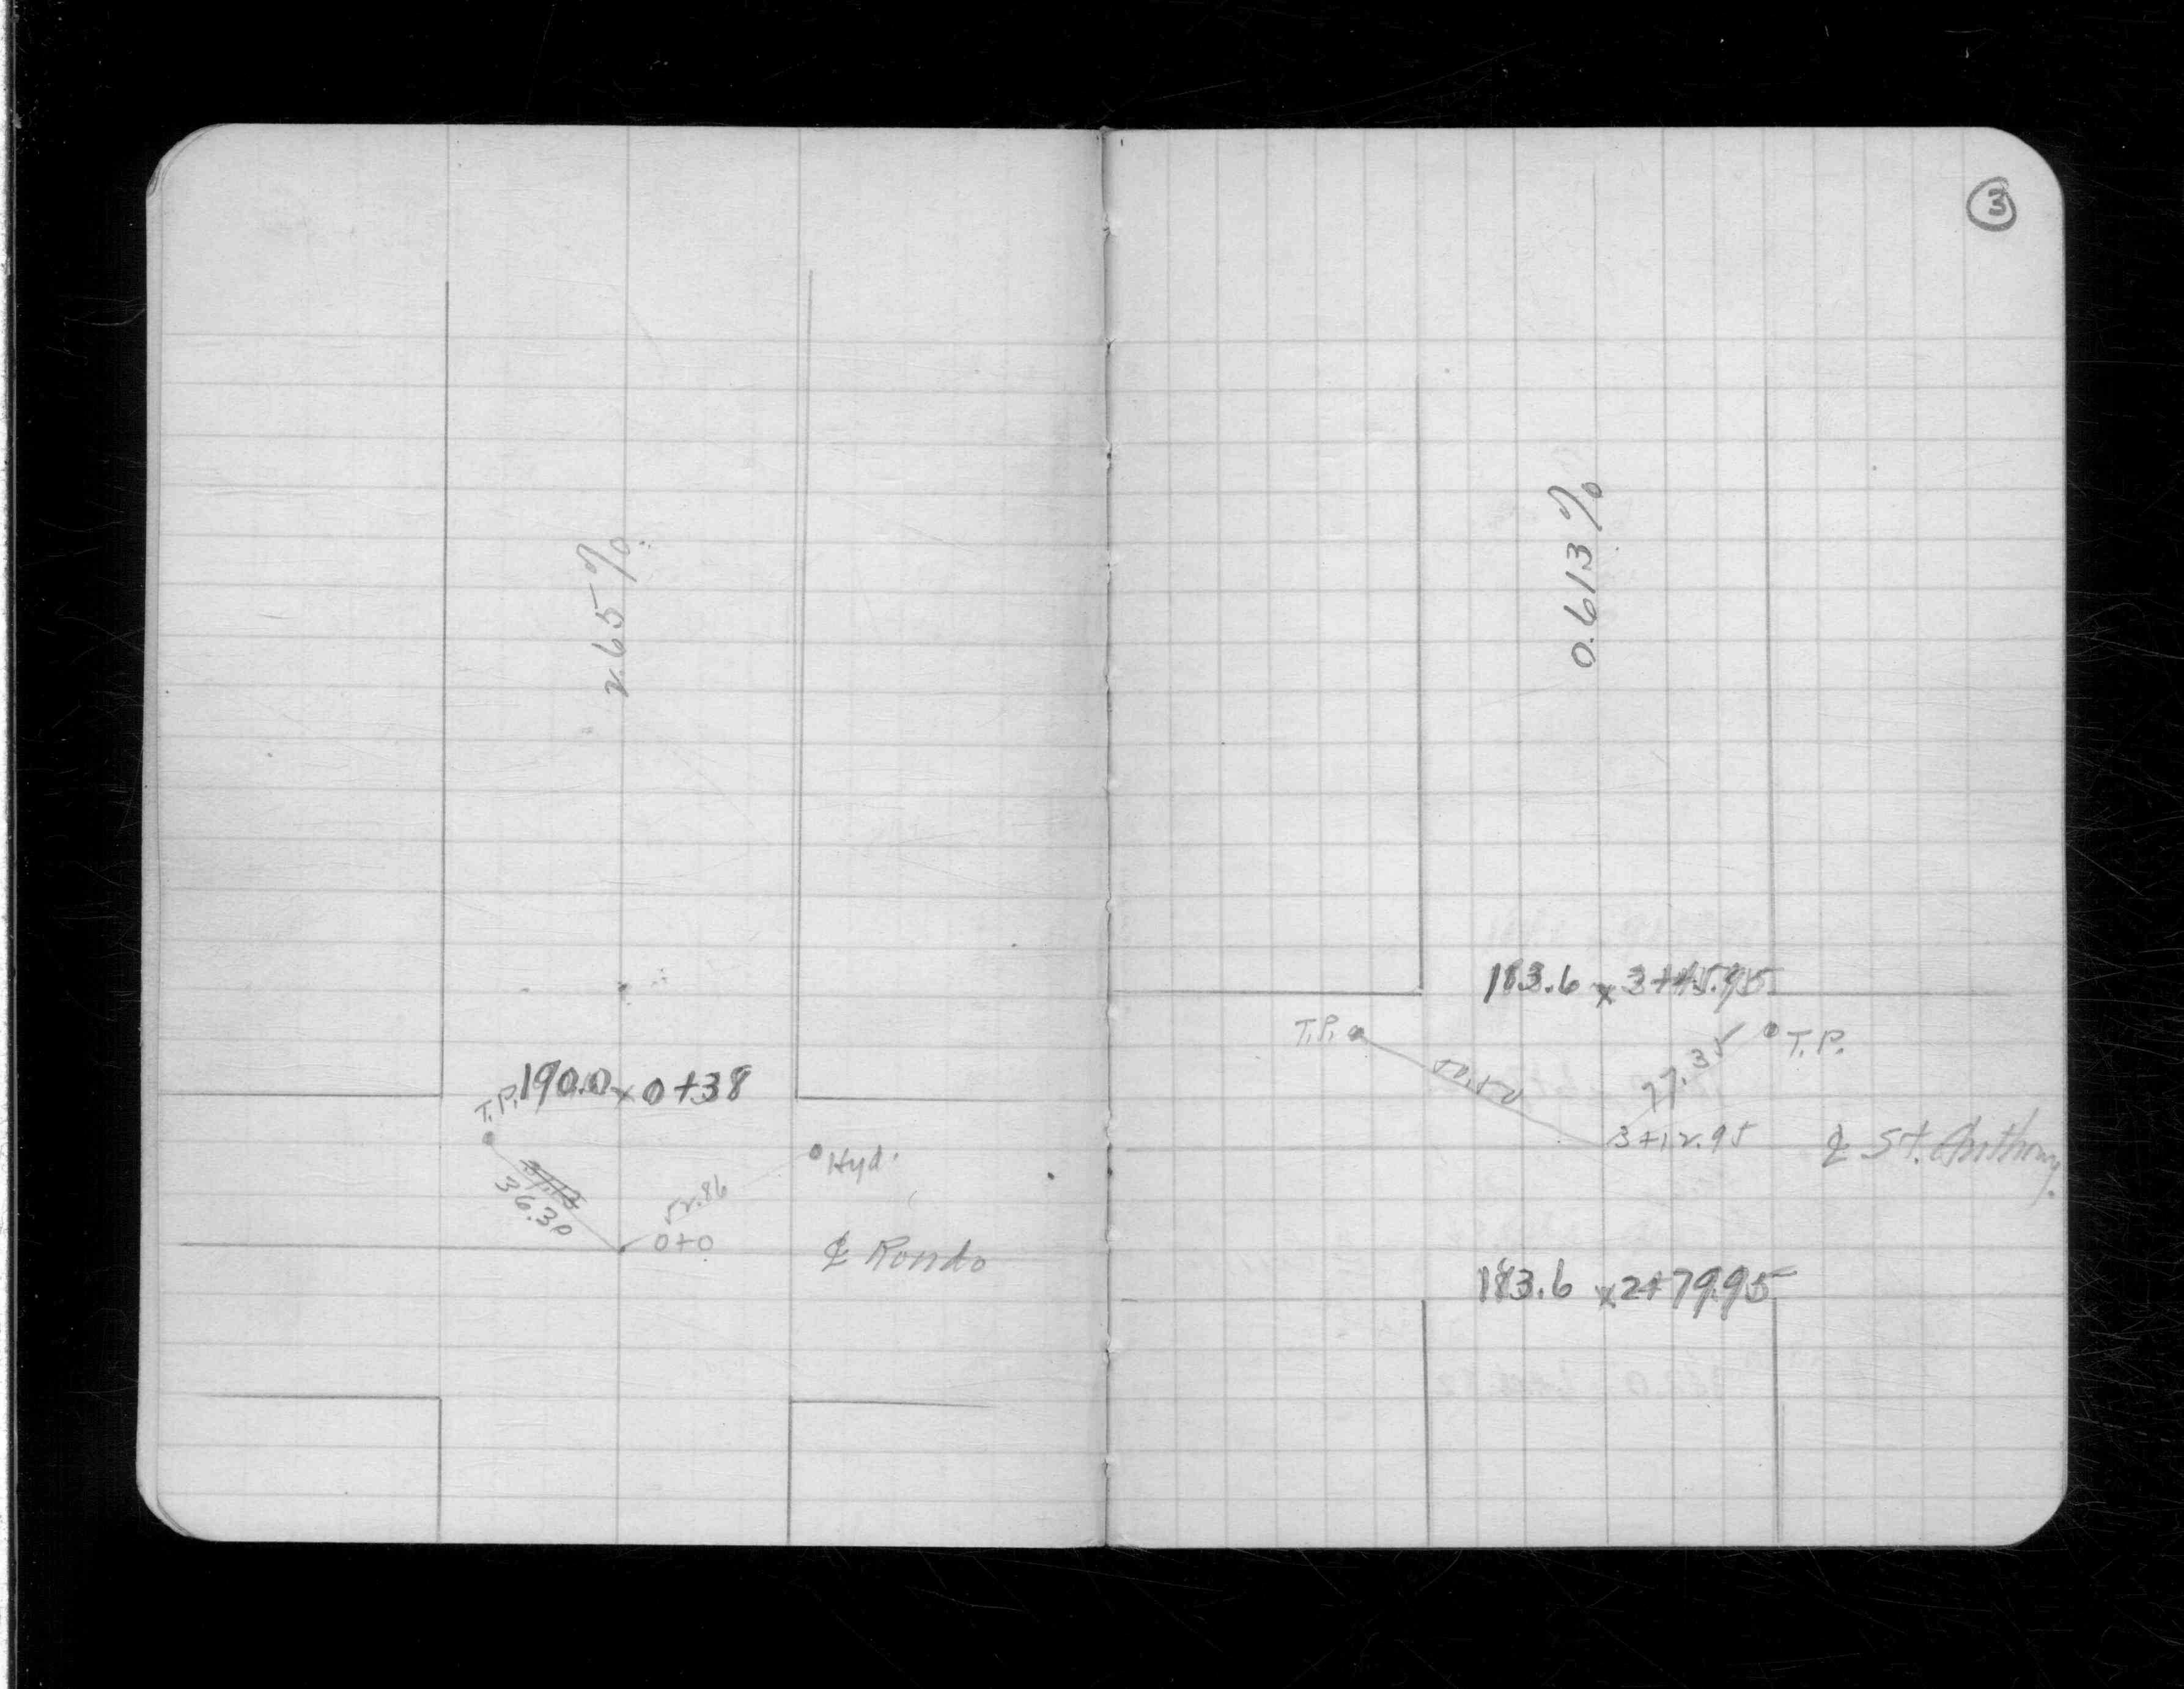 2.65%
T.P. 190.0 x 0+38
Hyd.
36.30
52.86
0+0
℄ Rondo
3
0.613%
183.6 x 3+45.95
T.P.
T.P.
50.50
77.35
3+12.95
℄ St. Anthony.
183.6 x 2+79.95